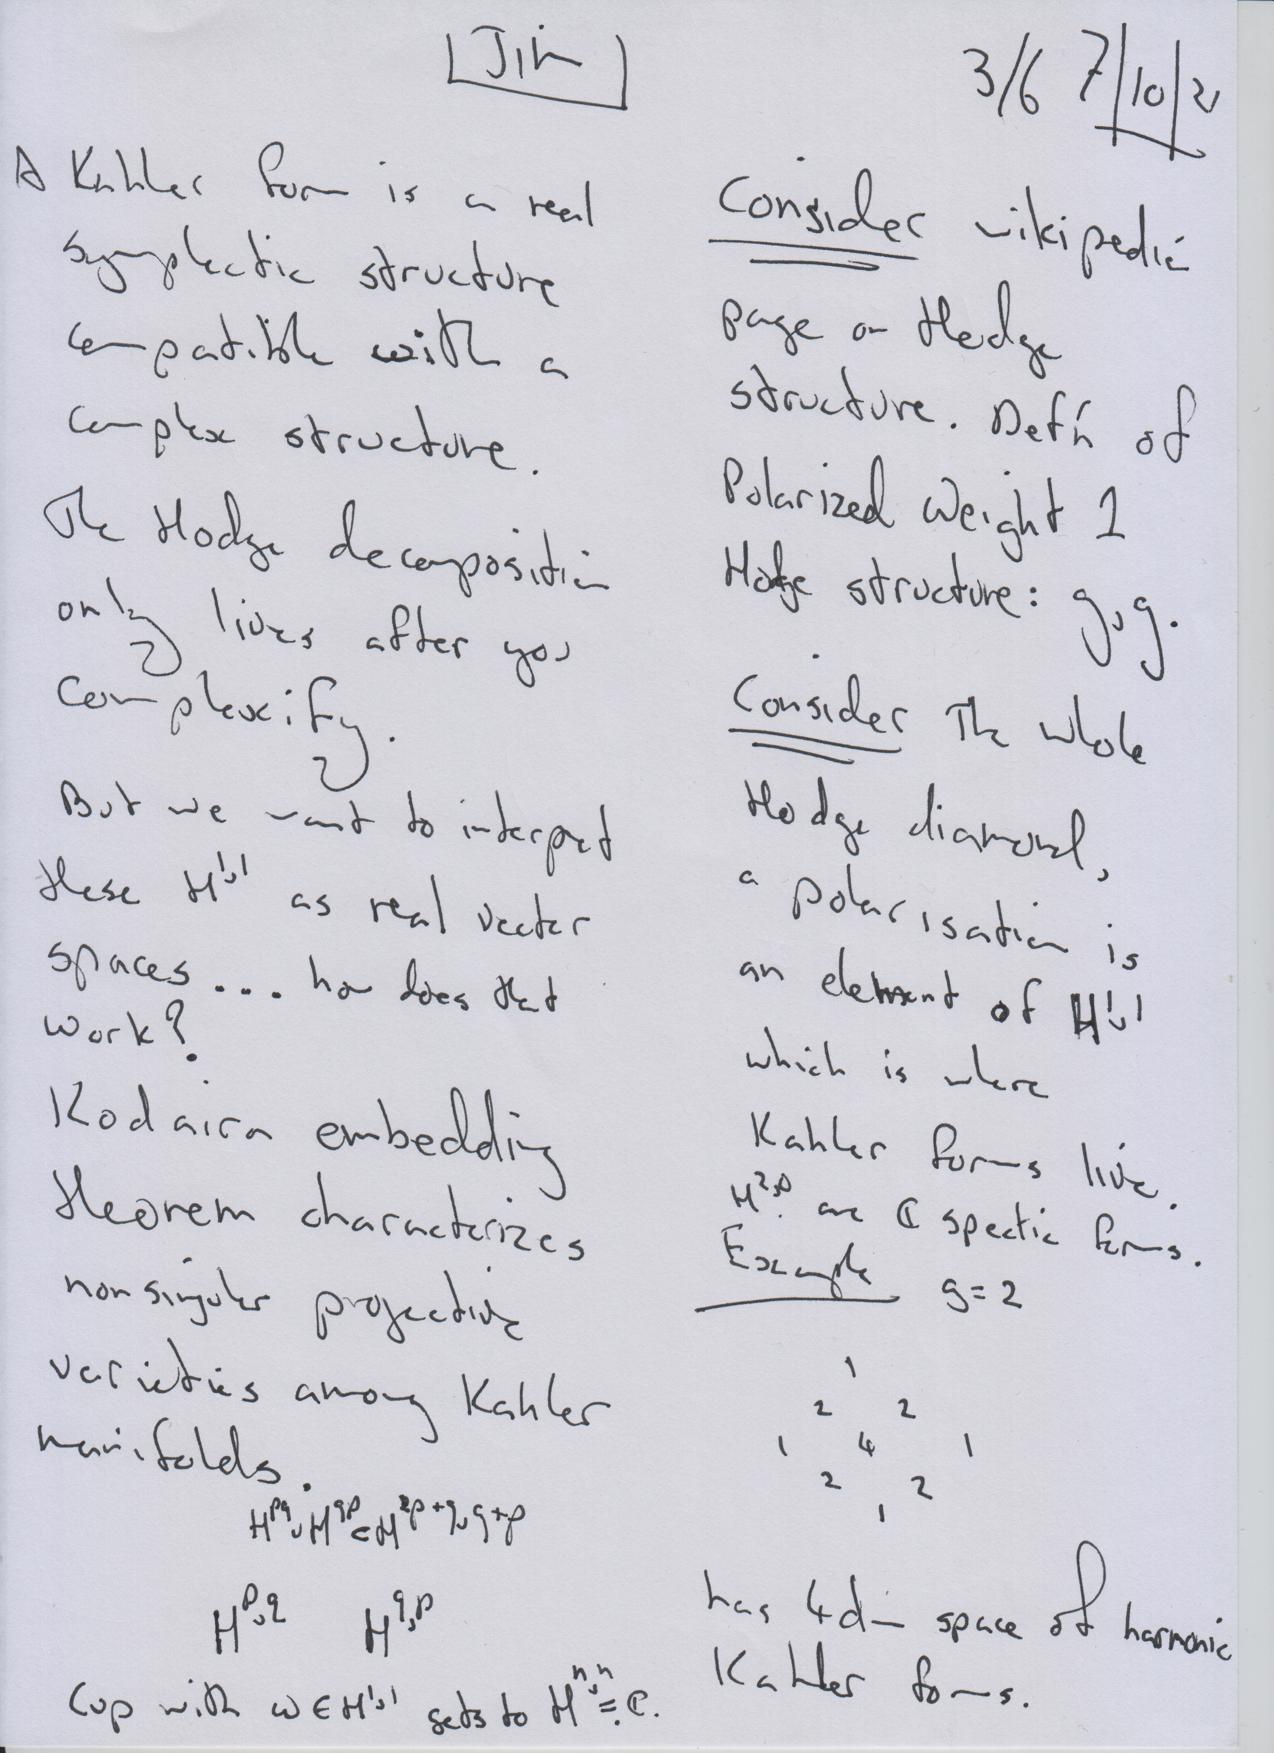 Jim
3/6 7/10/21
A Kahler form is a real
symplectic structure
compatible with a
complex structure.
The Hodge decomposition
only lives after you
complexify.
But we want to interpret
these H^{1,1} as real vector
spaces... how does that
work?
Kodaira embedding
theorem characterizes
nonsingular projective
varieties among Kahler
manifolds.
H^{p,q} ∪ H^{q,p} ⊂ H^{p+q,q+p}
H^{p,q} H^{q,p}
Cup with ω ∈ H^{1,1} gets to H^{n,n} = ℂ.
Consider wikipedia
page on Hodge
structure. Def'n of
Polarized Weight 1
Hodge structure: g,g.
Consider The whole
Hodge diamond,
a polarisation is
an element of H^{1,1}
which is where
Kahler forms live.
H^{2,0} are ℂ spectic forms.
Example g=2
1
2 2
1 4 1
2 2
1
has 4dim space of harmonic
Kahler forms.